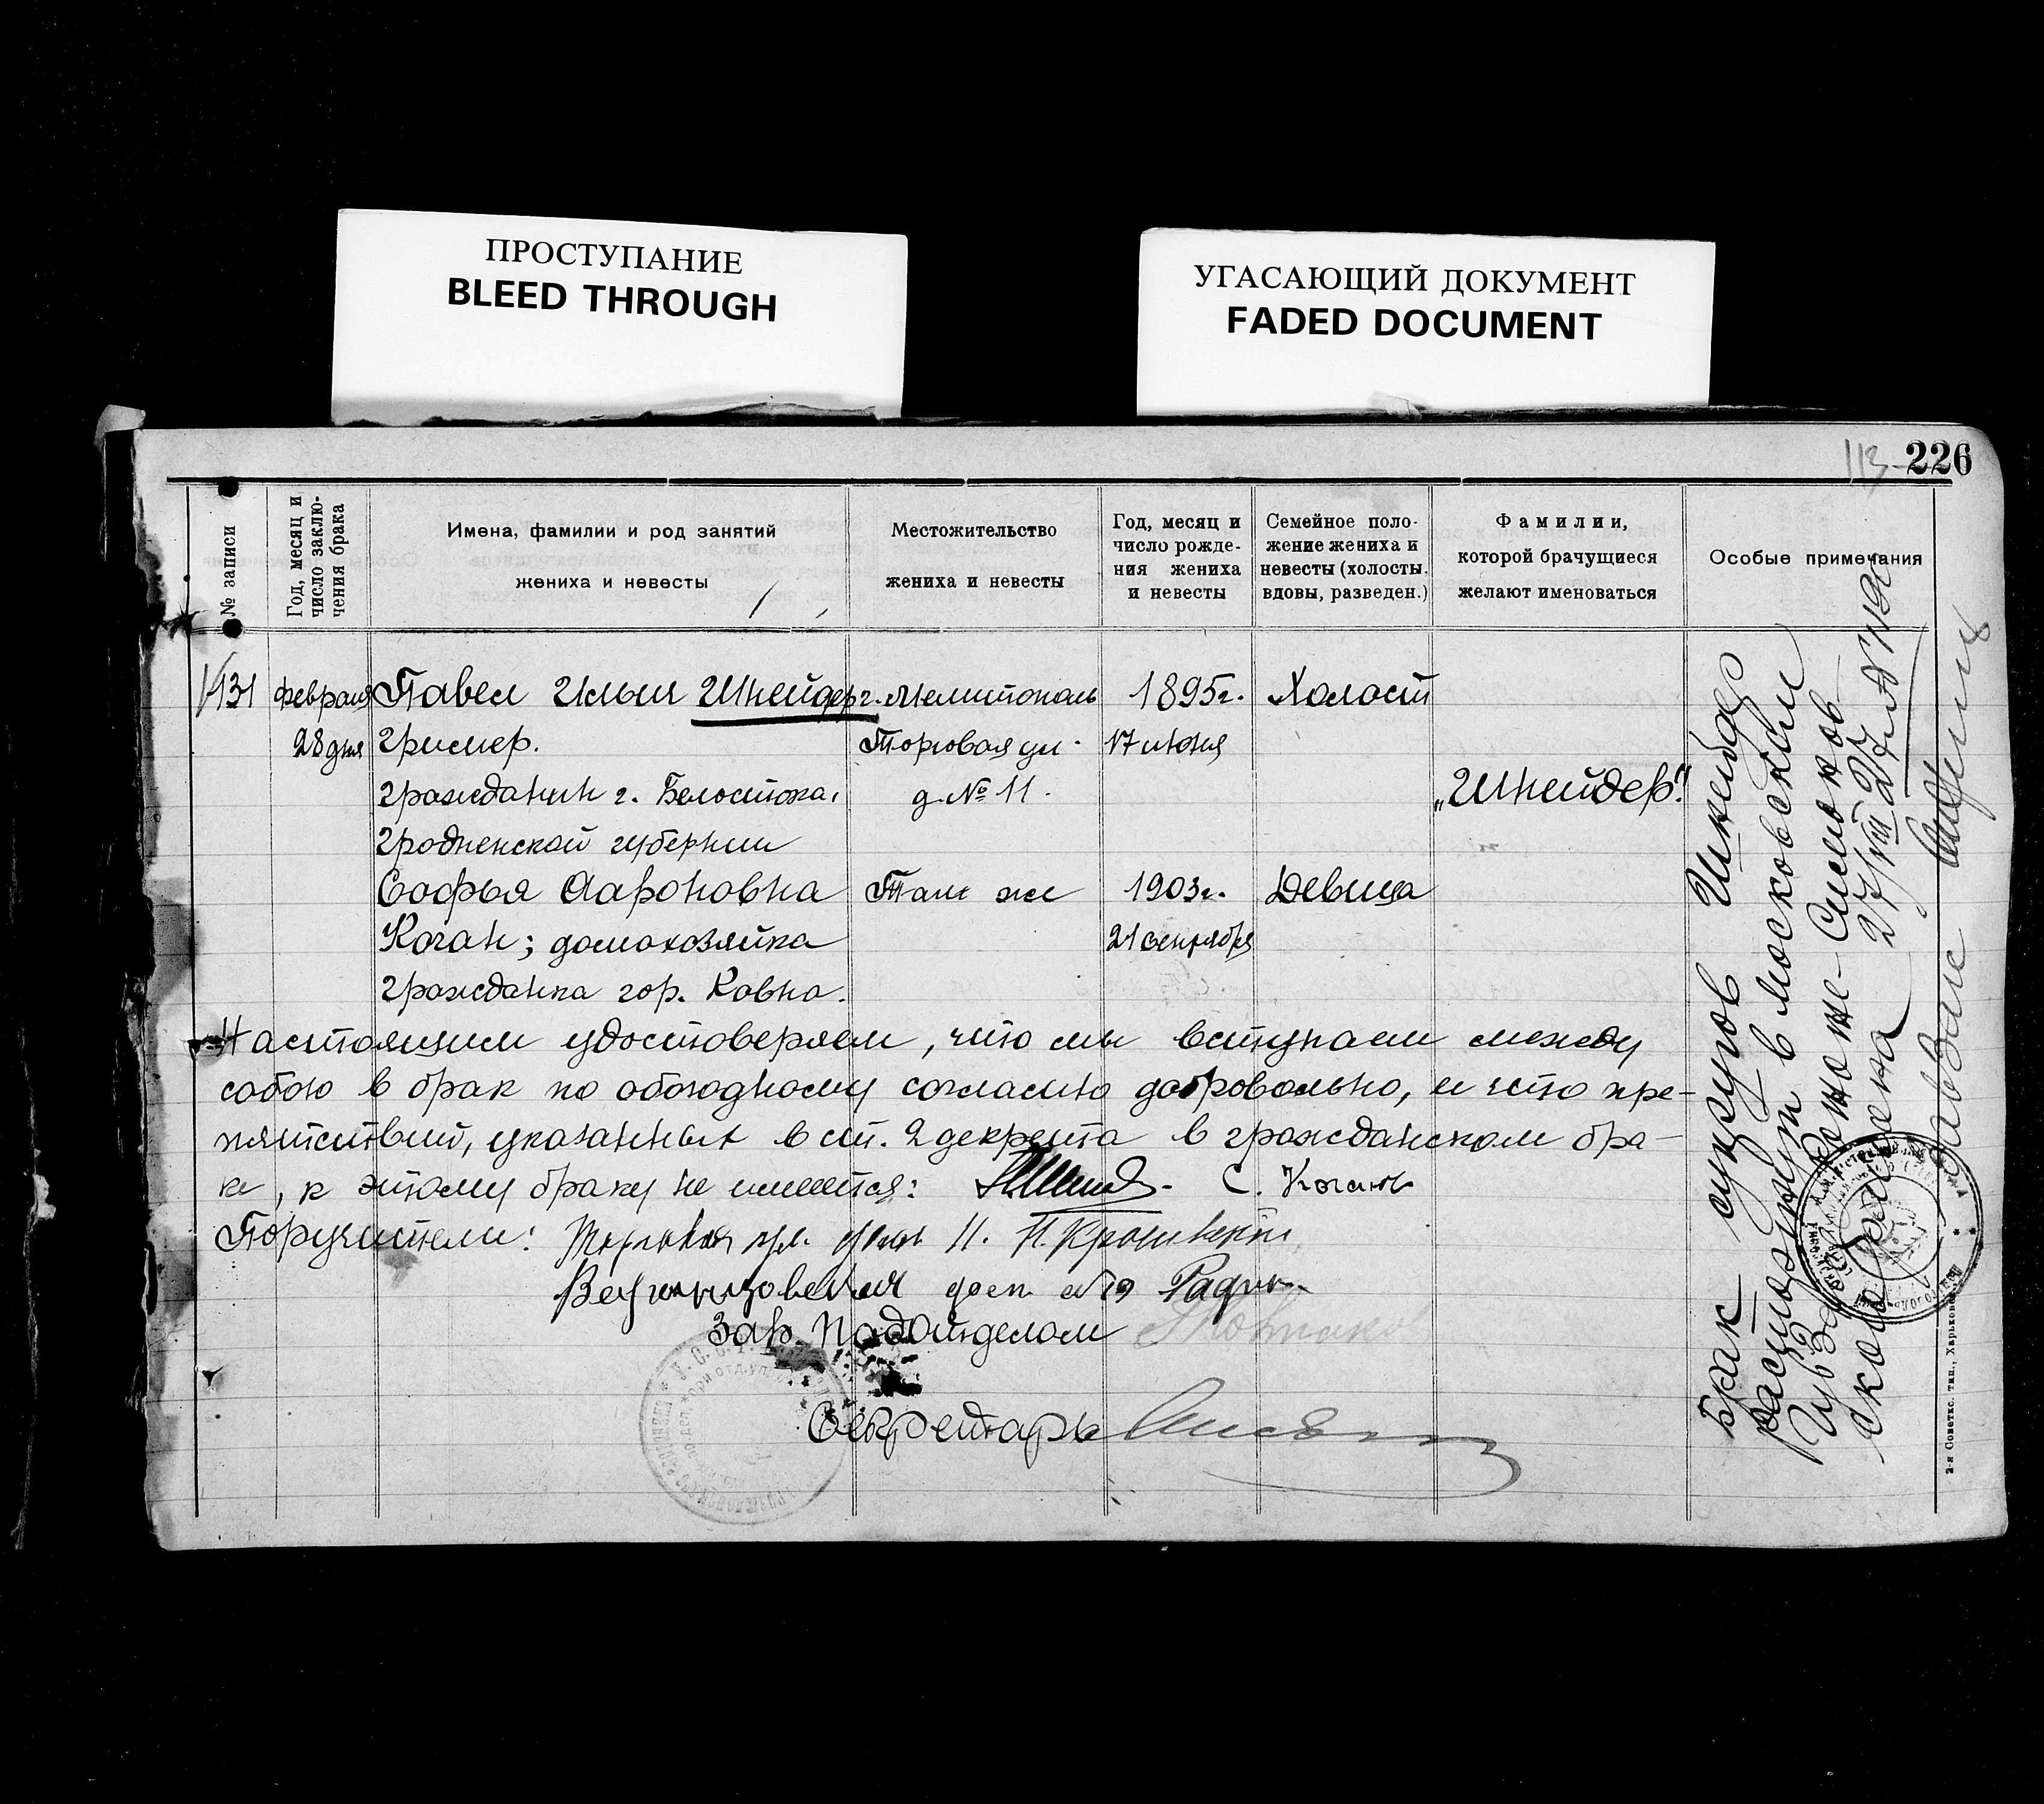 ПРОСТУПАНИЕ
BLEED THROUGH
УГАСАЮЩИЙ ДОКУМЕНТ
FADED DOCUMENT
113 226
№ записи
Год, месяц и
число заклю-
чения брака
Имена, фамилии и род занятий
жениха и невесты
Местожительство
жениха и невесты
Год, месяц и
число рожде-
ния жениха
и невесты
Семейное поло-
жение жениха и
невесты (холосты,
вдовы, разведен.)
Фамилии,
которой брачущиеся
желают именоваться
Особые примечания
131
февраля
28 дня
Павел Ильич Шнейдер
гример.
гражданин г. Белостока,
Гродненской губернии
Софья Аароновна
Коган; домохозяйка
гражданка гор. Ковно.
г. Мелитополь
Торговая ул.
д. № 11.
Там же
1895г.
17 июня
1903г.
21 сентября
Холост
Девица
„Шнейдер".
Настоящим удостоверяем, что мы вступаем между
собою в брак по обоюдному согласию добровольно, и что пре-
пятствий, указанных в ст. 2 декрета в гражданском бра-
ке, к этому браку не имеется: С. Коган
Поручители:
Зав. Подотделом
Секретарь
Брак супругов Шнейдер
расторгнут в Московском
27/VIII 27 г.
2-я Советск. тип., Харьков